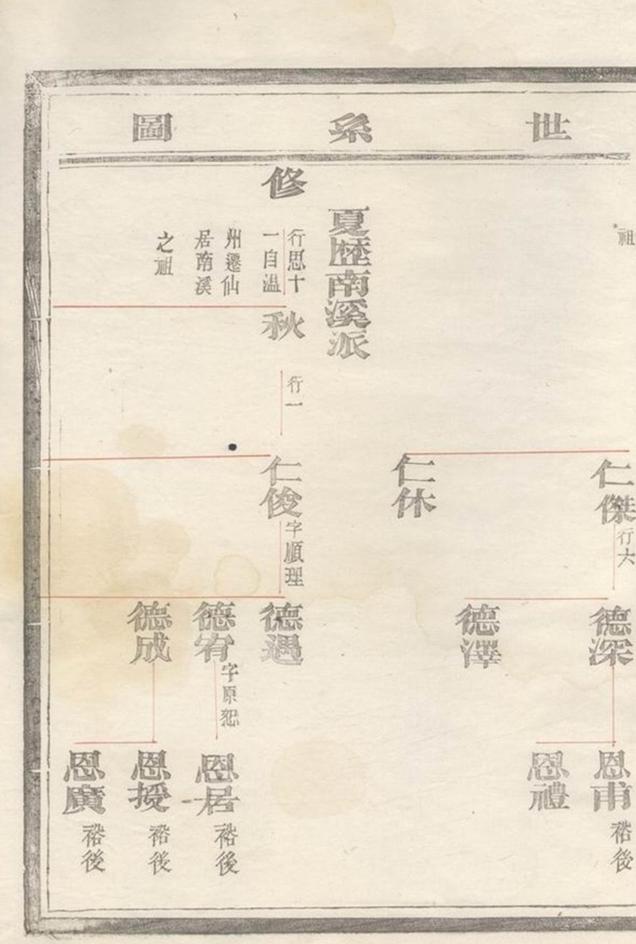 世系圖
祖
仁傑
行六
德深
恩甫
裕後
德澤
恩禮
仁休
夏歷南溪派
修
行思十
一自溫
州遷仙
居南溪
之祖
秋
行一
仁俊
字順理
德遇
德宥
字原恕
恩居
裕後
德成
恩授
裕後
恩廣
裕後